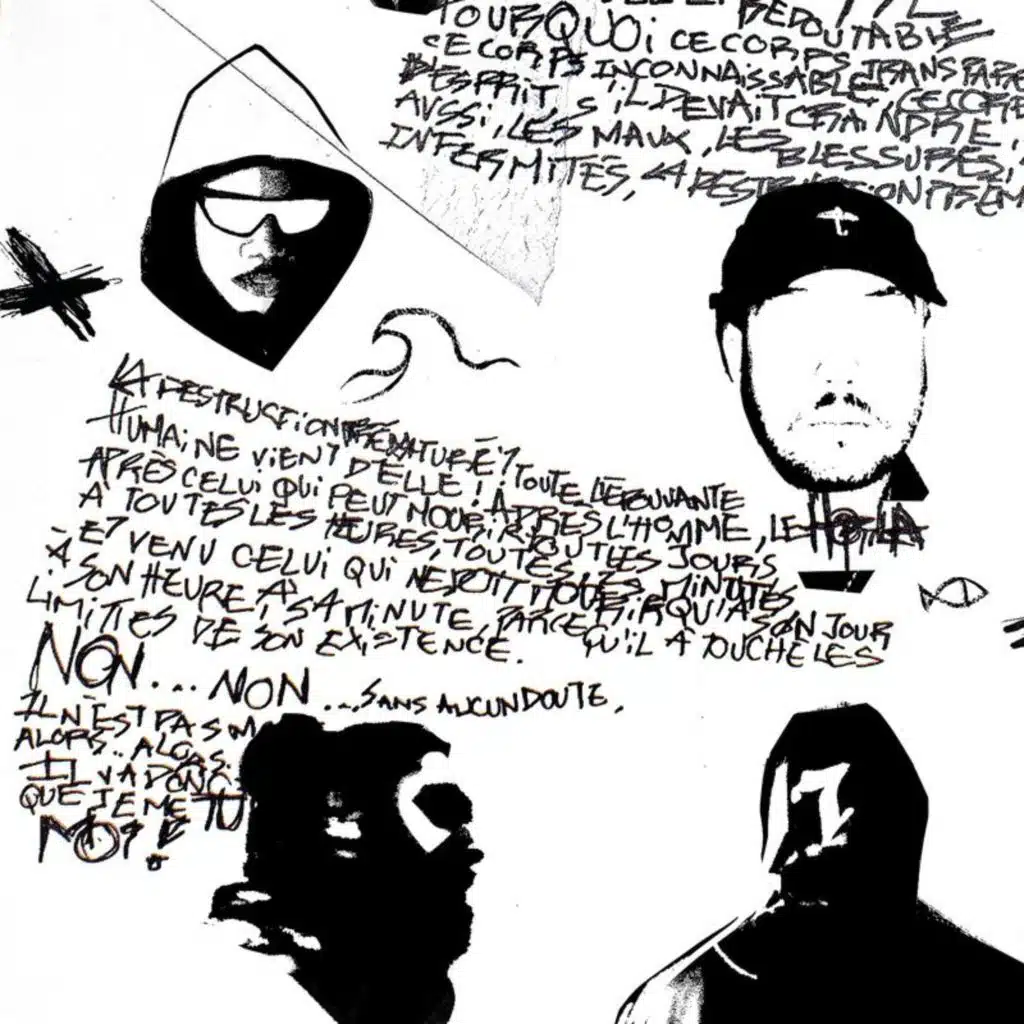 REDOUTABLE
POURQUOI CE CORPS
CE CORPS INCONNAISSABLE, TRANSPARE
D'ESPRIT, S'IL DEVAIT CRAINDRE,
AUSSI, LES MAUX, LES BLESSURES,
INFIRMITÉS, LA DESTRUCTION
LA DESTRUCTION PRÉMATURÉ? TOUTE L'ÉPOUVANTE
HUMAINE VIENT D'ELLE! APRES L'HOMME, LE HORLA
APRÈS CELUI QUI PEUT MOURIR TOUS LES JOURS
À TOUTES LES HEURES, TOUTES LES MINUTES
ET VENU CELUI QUI NE DOIT MOURIR QU'A SON JOUR
À SON HEURE, A SA MINUTE, PARCE QU'IL A TOUCHÉ LES
LIMITES DE SON EXISTENCE.
NON... NON... SANS AUCUN DOUTE,
IL N'EST PAS M
ALORS.. ALORS.
IL VA DONC
QUE JE ME TU
MOI!